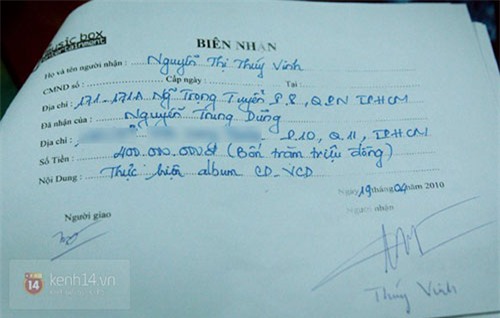 music box
entertainment
BIÊN NHẬN
Họ và tên người nhận : Nguyễn Thị Thúy Vinh
CMND số : Cấp ngày : Tại :
Địa chỉ : 171-171A Ng̃ Trọng Tuyển P.8, Q.PN TPHCM
Đã nhận của : Nguyễn Trung Dũng
Địa chỉ : P.10, Q.11, TPHCM
Số Tiền : 400.000.000đ (Bốn trăm triệu đồng)
Nội Dung : Thực hiện album CD-VCD
Ngày 19 tháng 04 năm 2010
Người giao Người nhận
Thúy Vinh
kenh14.vn